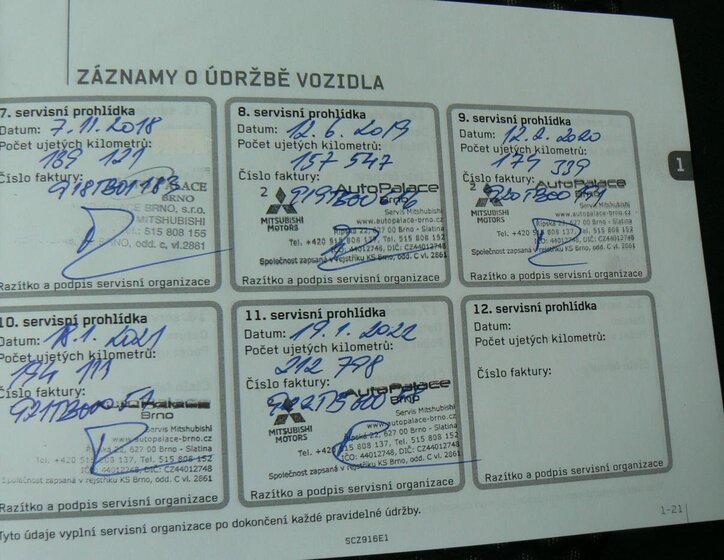 ZÁZNAMY O ÚDRŽBĚ VOZIDLA
7. servisní prohlídka
Datum: 7.11.2018
Počet ujetých kilometrů:
139 121
Číslo faktury:
BRNO
BRNO, s.r.o.
MITSUBISHI
tel.: 515 808 155
BRNO, odd. C, vl.2861
Razítko a podpis servisní organizace
8. servisní prohlídka
Datum: 12.6.2019
Počet ujetých kilometrů:
157 547
Číslo faktury:
2
AutoPalace
MITSUBISHI
MOTORS
Servis Mitshubishi
www.autopalace-brno.cz
Řípská 22, 627 00 Brno - Slatina
Tel. +420 515 808 137, Tel. 515 808 152
IČO: 44012748, DIČ: CZ44012748
Společnost zapsaná v rejstříku KS Brno, odd. C vl. 2861
Razítko a podpis servisní organizace
9. servisní prohlídka
Datum: 12.2.2020
Počet ujetých kilometrů:
179 339
Číslo faktury:
2
AutoPalace
MITSUBISHI
MOTORS
Servis Mitshubishi
www.autopalace-brno.cz
Řípská 22, 627 00 Brno - Slatina
Tel. +420 515 808 137, Tel. 515 808 152
IČO: 44012748, DIČ: CZ44012748
Společnost zapsaná v rejstříku KS Brno, odd. C vl. 2861
Razítko a podpis servisní organizace
1
10. servisní prohlídka
Datum: 18.1.2021
Počet ujetých kilometrů:
194 111
Číslo faktury:
Brno
Servis Mitshubishi
www.autopalace-brno.cz
Řípská 22, 627 00 Brno - Slatina
Tel. +420 515 808 137, Tel. 515 808 152
IČO: 44012748, DIČ: CZ44012748
Společnost zapsaná v rejstříku KS Brno, odd. C vl. 2861
Razítko a podpis servisní organizace
11. servisní prohlídka
Datum: 19.1.2022
Počet ujetých kilometrů:
212 798
Číslo faktury:
AutoPalace
Brno
MITSUBISHI
MOTORS
Servis Mitshubishi
www.autopalace-brno.cz
22, 627 00 Brno - Slatina
Tel. +420 515 808 137, Tel. 515 808 152
IČO: 44012748, DIČ: CZ44012748
Společnost zapsaná v rejstříku KS Brno, odd. C vl. 2861
Razítko a podpis servisní organizace
12. servisní prohlídka
Datum:
Počet ujetých kilometrů:
Číslo faktury:
Razítko a podpis servisní organizace
Tyto údaje vyplní servisní organizace po dokončení každé pravidelné údržby.
1-21
SCZ916E1